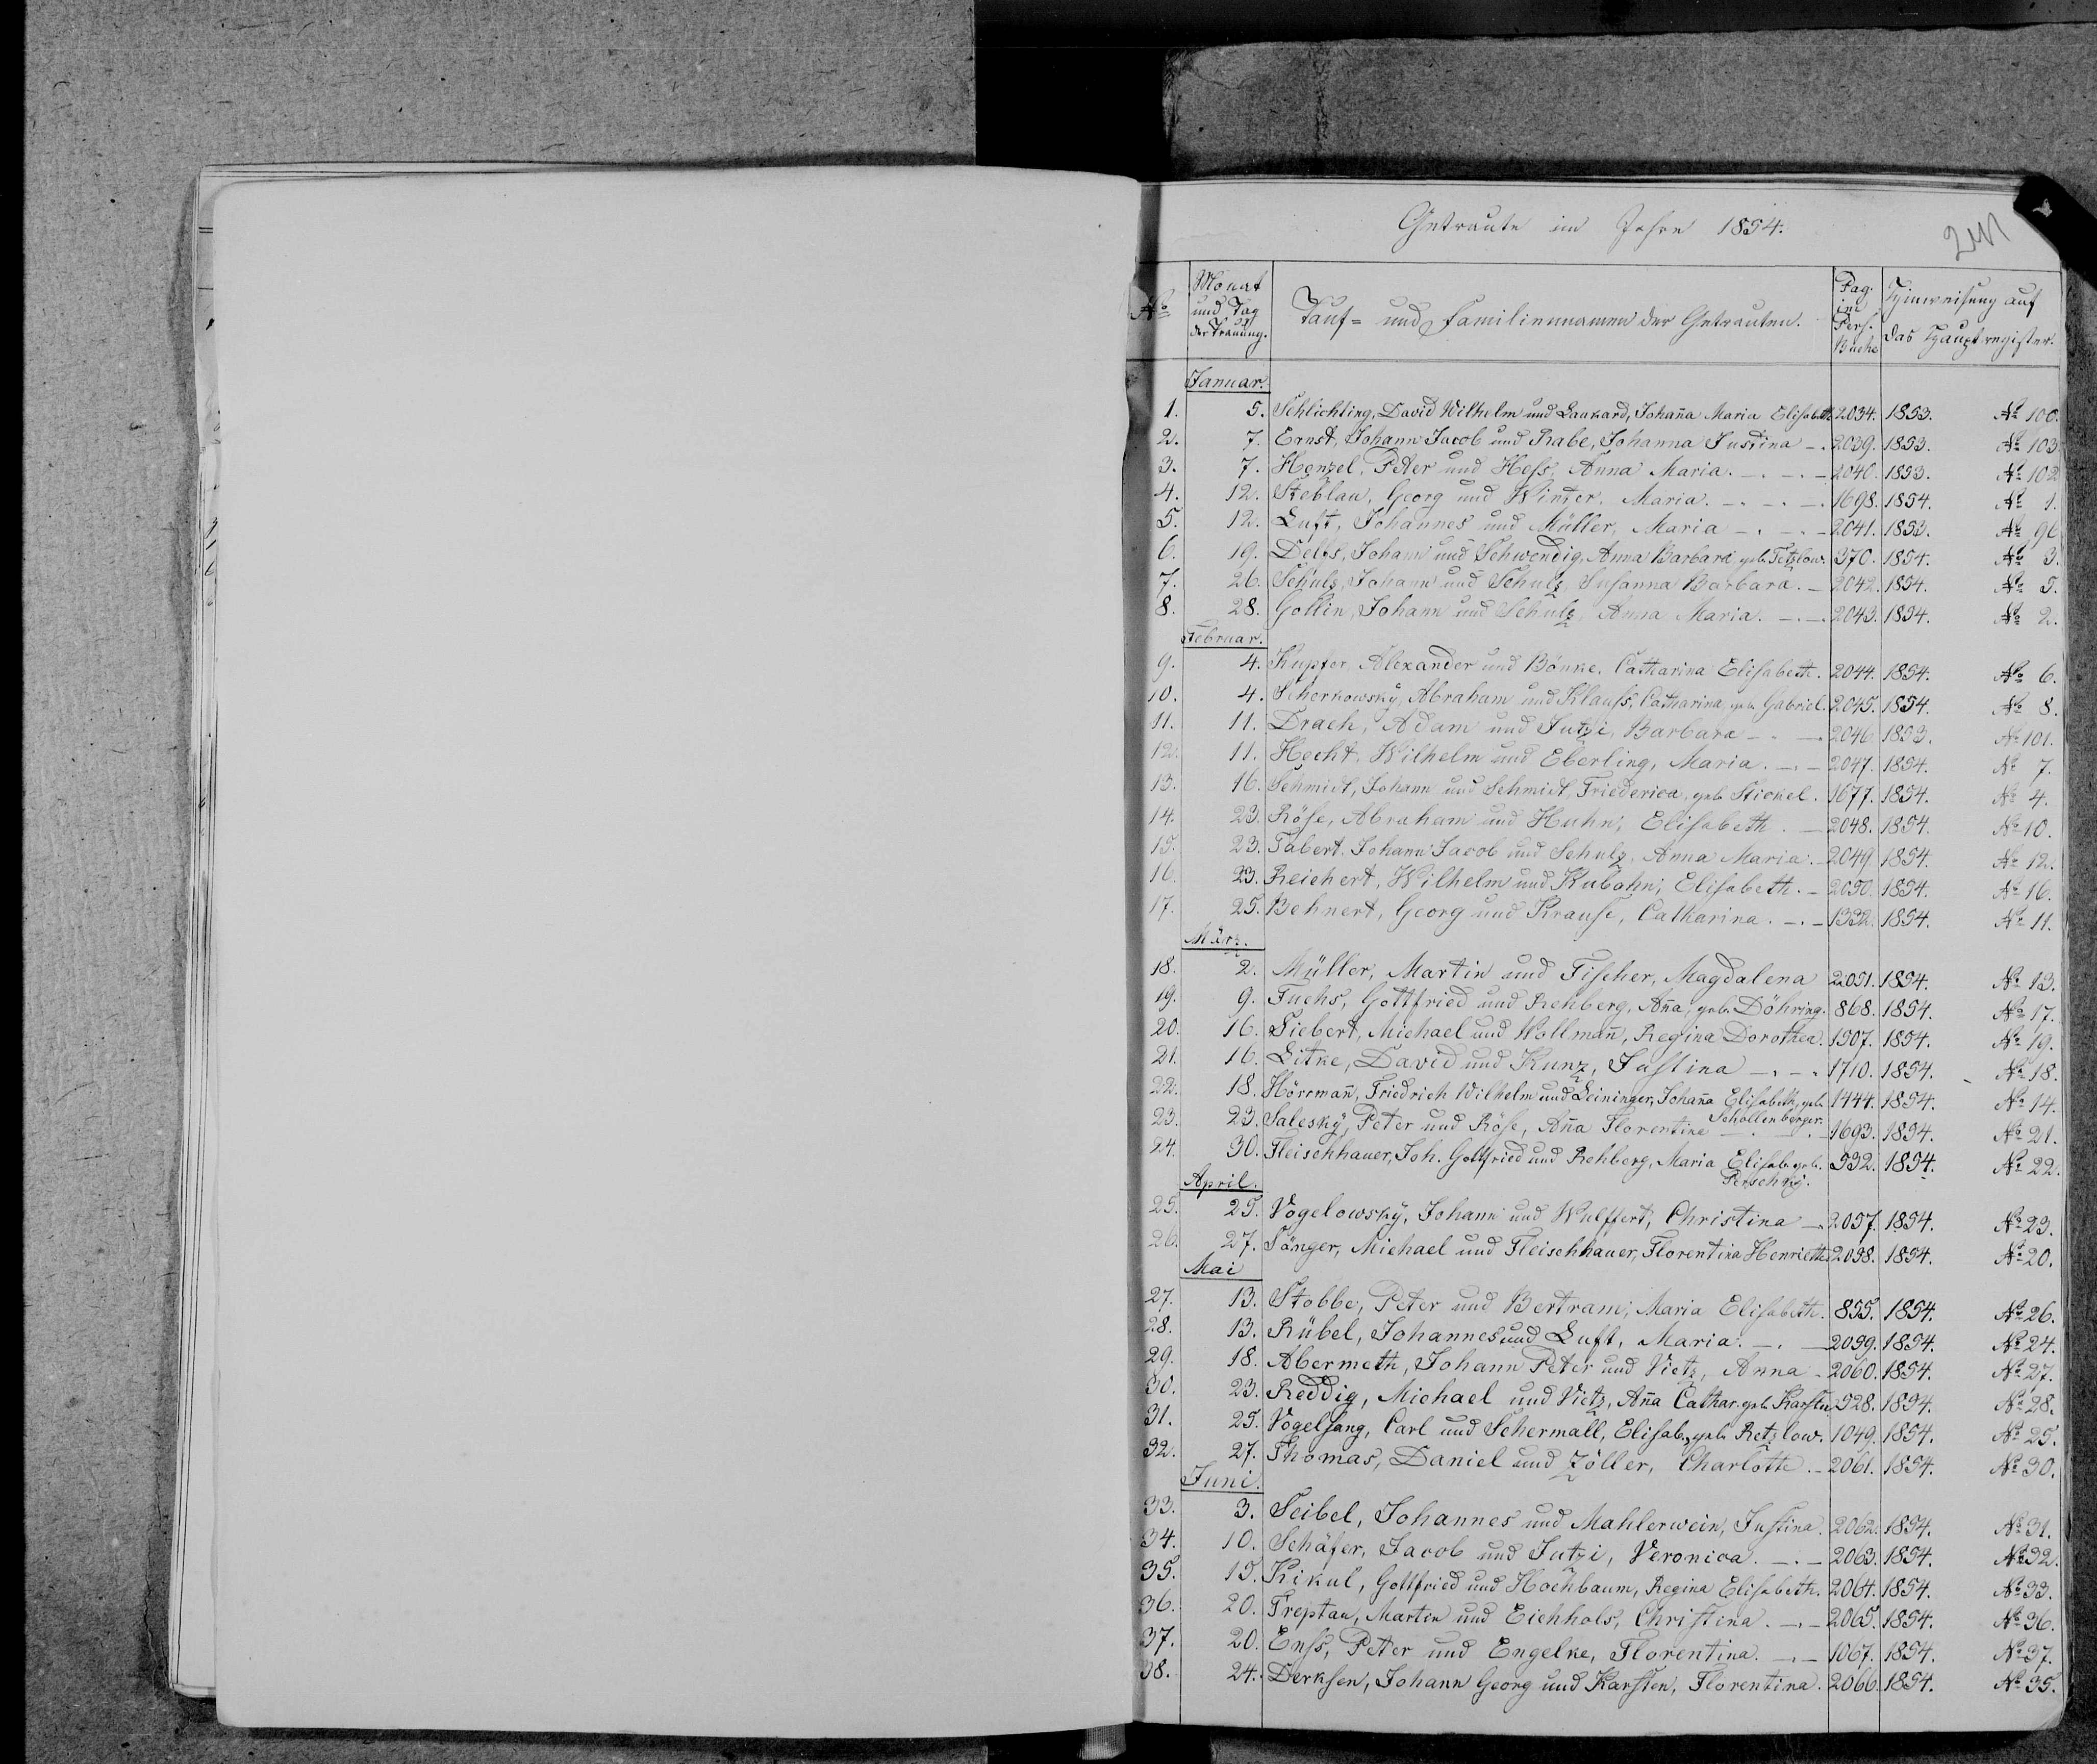 Getraute im Jahre 1854.
No Monat und Tag der Trauung. Tauf- und Familiennamen der Getrauten. Pag. im Pers. Buche Hinweisung auf das Hauptregister.
Januar.
1. 5. Schlichting, David Wilhelm und Laukard, Johan̄a Maria Elisabeth 2034. 1853. No 100.
2. 7. Ernst, Johann Jacob und Rabe, Johanna Justina 2039. 1853. No 103.
3. 7. Henzel, Peter und Hess, Anna Maria. 2040. 1853. No 102
4. 12. Steblau, Georg und Winter, Maria. 1698. 1854. No 1.
5. 12. Luft, Johannes und Müller, Maria 2041. 1853. No 96
6. 19. Delfs, Johann und Schwendig, Anna Barbara geb. Tetzlow. 370. 1854. No 3.
7. 26. Schulz, Johann und Schulz, Susanna Barbara. 2042. 1854. No 5.
8. 28. Gollin, Johann und Schulz, Anna Maria. 2043. 1854. No 2.
Februar.
9. 4. Kupfer, Alexander und Bönke, Catharina Elisabeth. 2044. 1854. No 6.
10. 4. Scherkowsky, Abraham und Klauss, Catharina, geb. Gabriel. 2045. 1854. No 8.
11. 11. Drach, Adam und Jutzi, Barbara 2046. 1853. No 101.
12. 11. Hecht, Wilhelm und Eberling, Maria. 2047. 1854. No 7.
13. 16. Schmidt, Johann und Schmidt, Friederica, geb. Stickel. 1677. 1854. No 4.
14. 23. Röse, Abraham und Huhn, Elisabeth. 2048. 1854. No 10.
15. 23. Tabert, Johann Jacob und Schulz, Anna Maria. 2049. 1854. No 12.
16. 23. Reichert, Wilhelm und Kubahn, Elisabeth. 2050. 1854. No 16.
17. 25. Behnert, Georg und Krause, Catharina. 1332. 1854. No 11.
März.
18. 2. Müller, Martin und Fischer, Magdalena 2051. 1854. No 13.
19. 9. Fuchs, Gottfried und Rehberg, An̄a, geb. Döhring. 868. 1854. No 17.
20. 16. Siebert, Michael und Wollman̄, Regina Dorothea. 1507. 1854. No 19.
21. 16. Litke, David und Kunz, Justina 1710. 1854. No 18.
22. 18. Hörrman̄, Friedrich Wilhelm und Leininger, Johan̄a Elisabeth, geb. Schollenberger. 1444. 1854. No 14.
23. 23. Salesky, Peter und Röse, An̄a Florentine 1693. 1854. No 21.
24. 30. Fleischhauer, Joh. Gottfried und Rehberg, Maria Elisab. geb. Perschky. 532. 1854. No 22.
April.
25. 25. Vogelowsky, Johann und Wulffert, Christina 2057. 1854. No 23.
26. 27. Sänger, Michael und Fleischhauer, Florentina Henriette 2058. 1854. No 20.
Mai
27. 13. Stobbe, Peter und Bertram, Maria Elisabeth. 855. 1854. No 26.
28. 13. Rübel, Johannes und Luft, Maria. 2059. 1854. No 24.
29. 18. Abermeth, Johann Peter und Vietz, Anna 2060. 1854. No 27.
30. 23. Reddig, Michael und Vietz, An̄a Cathar. geb. Karsten 528. 1854. No 28.
31. 25. Vogelsang, Carl und Schermall, Elisab., geb. Retzlow. 1049. 1854. No 25.
32. 27. Thomas, Daniel und Zöller, Charlotte. 2061. 1854. No 30.
Juni.
33. 3. Seibel, Johannes und Mahlerwein, Justina. 2062. 1854. No 31.
34. 10. Schäfer, Jacob und Jutzi, Veronica. 2063. 1854. No 32.
35. 15. Kikul, Gottfried und Hochbaum, Regina Elisabeth. 2064. 1854. No 33.
36. 20. Treptau, Martin und Eichhols, Christina. 2065. 1854. No 36.
37. 20. Enss, Peter und Engelke, Florentina. 1067. 1854. No 37.
38. 24. Derksen, Johann Georg und Karsten, Florentina. 2066. 1854. No 35.